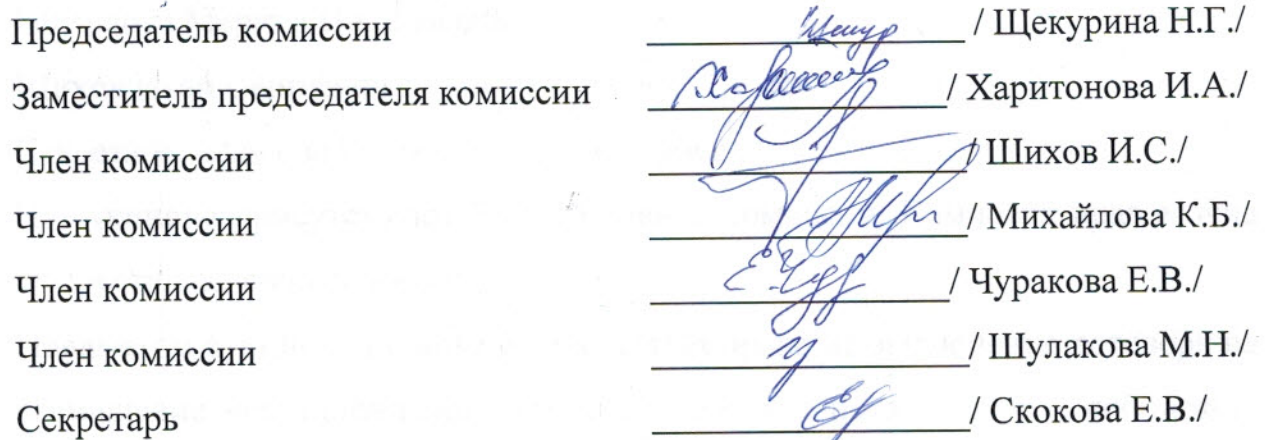 Председатель комиссии / Щекурина Н.Г./
Заместитель председателя комиссии / Харитонова И.А./
Член комиссии / Шихов И.С./
Член комиссии / Михайлова К.Б./
Член комиссии / Чуракова Е.В./
Член комиссии / Шулакова М.Н./
Секретарь / Скокова Е.В./